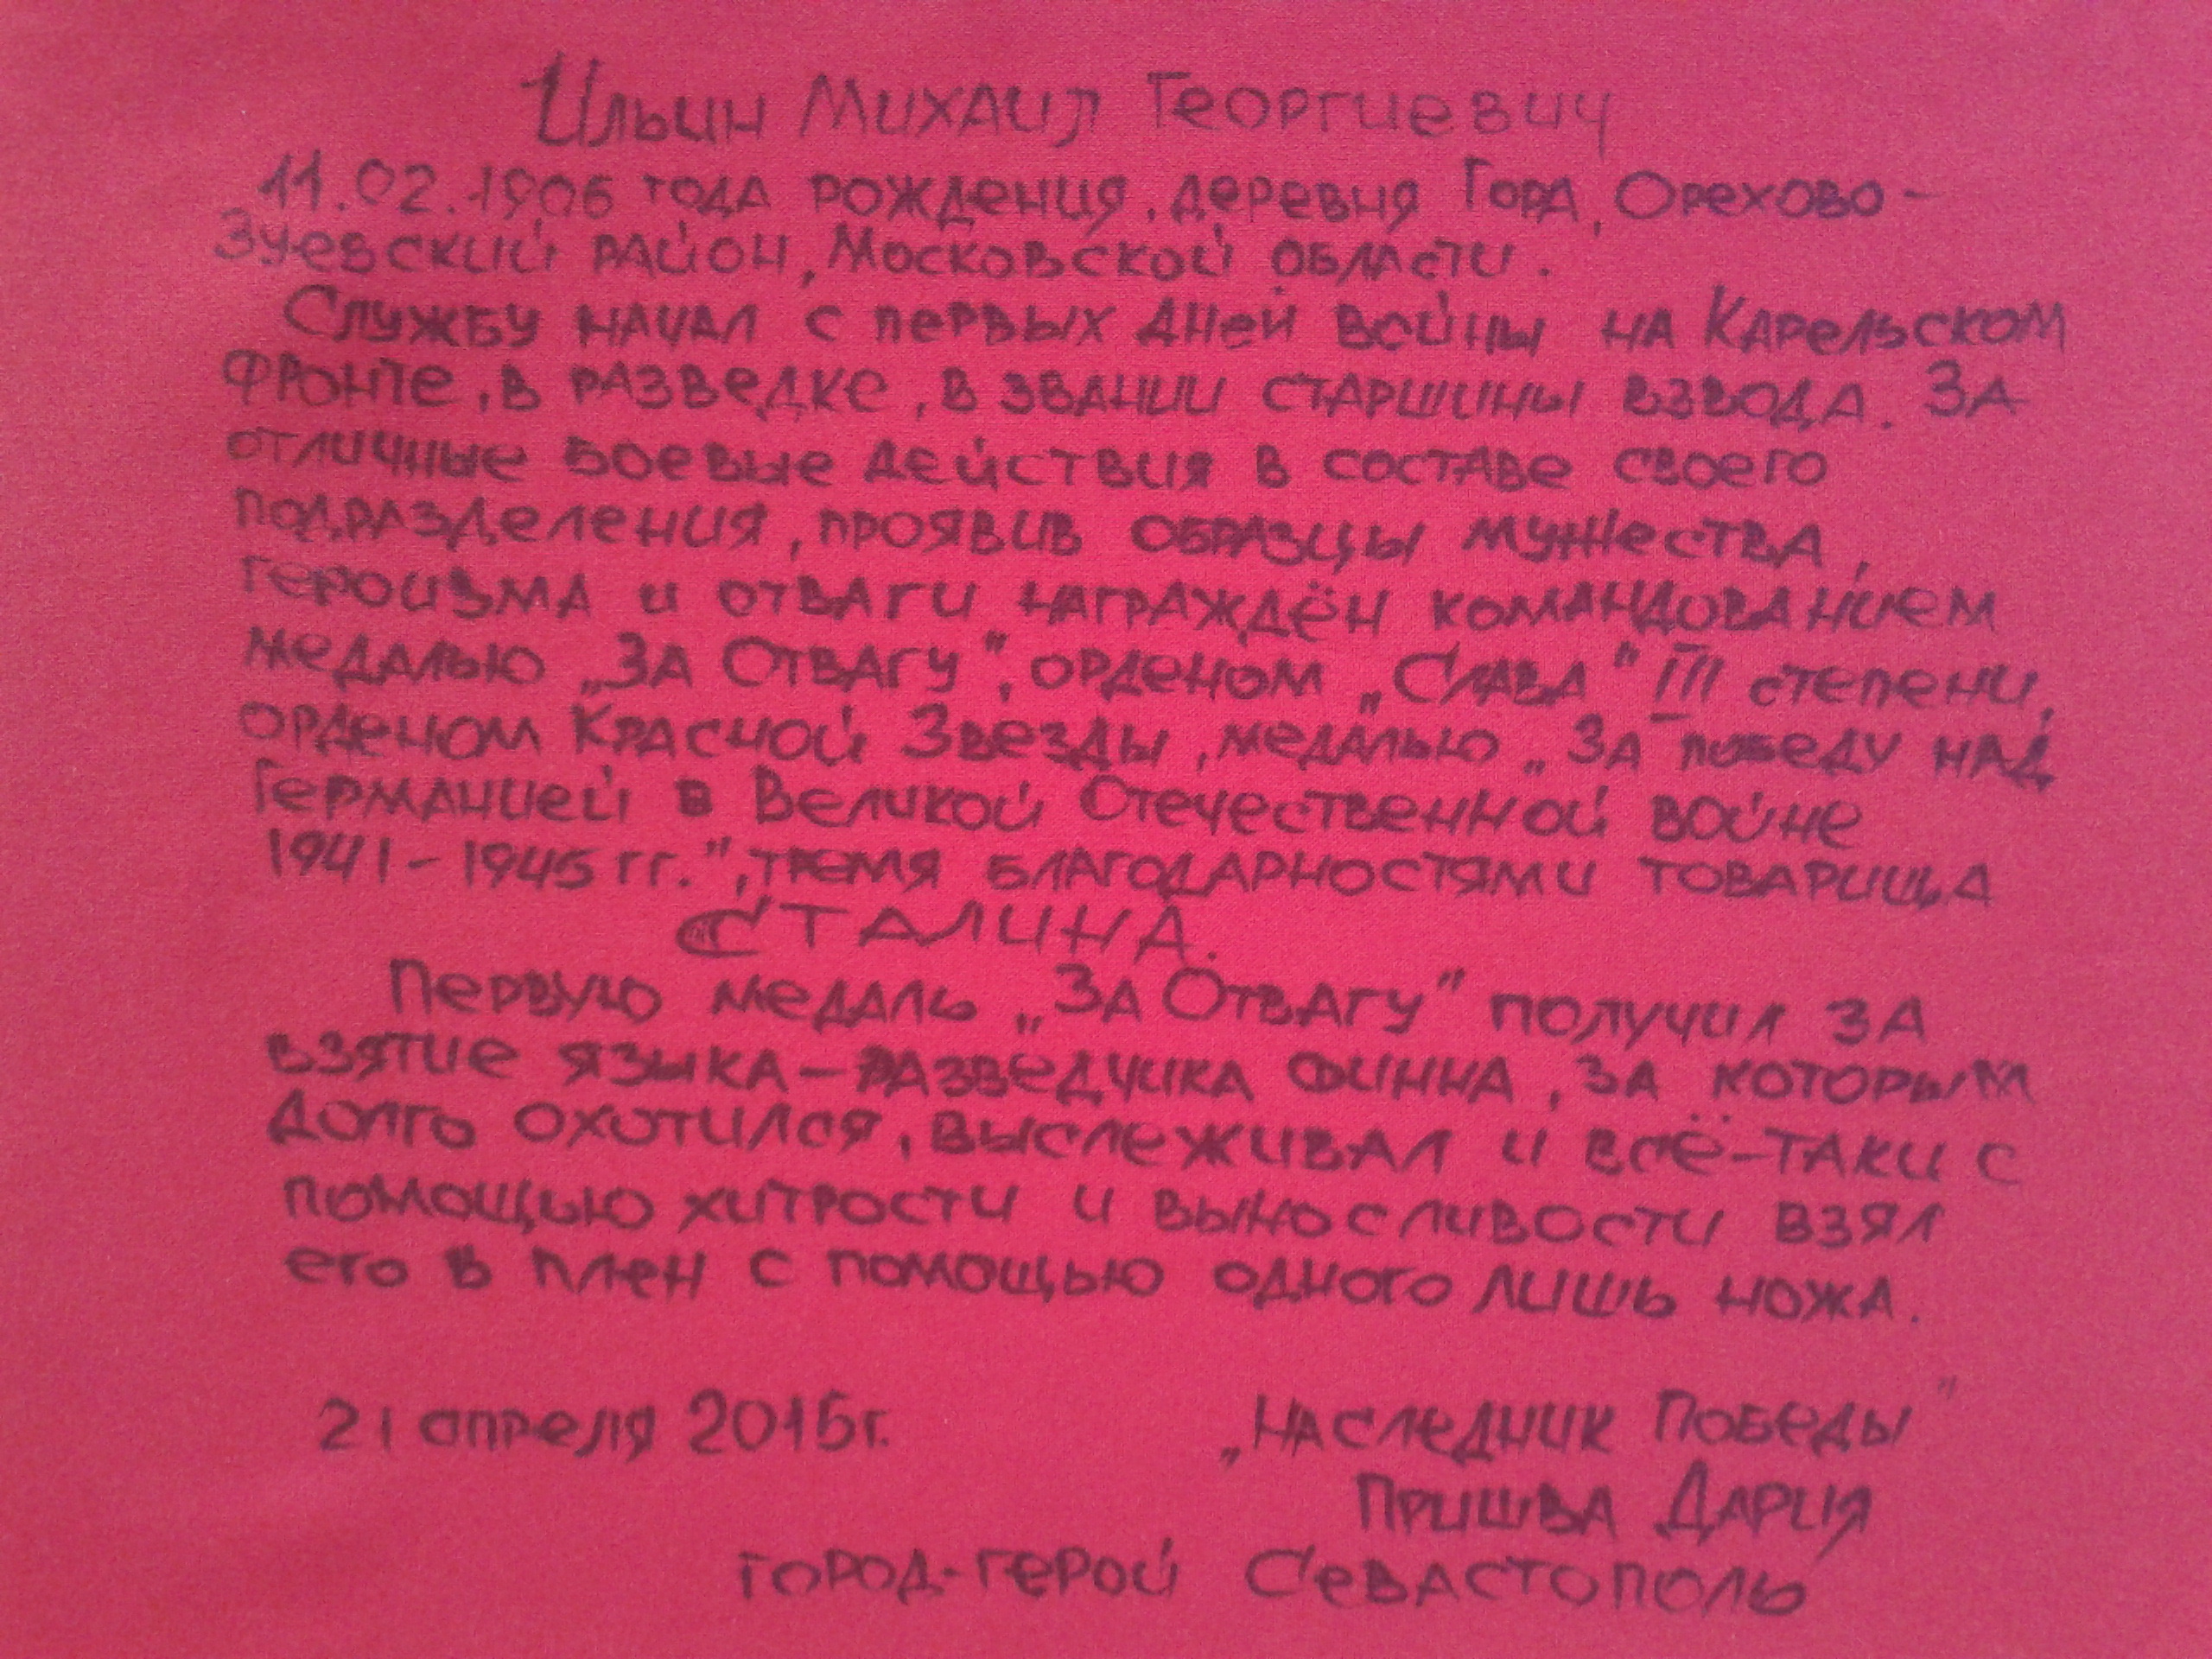 Ильин Михаил Георгиевич
11.02.1906 года рождения, деревня Гора, Орехово-
Зуевский район, Московской области.
Службу начал с первых дней войны на Карельском
фронте, в разведке, в звании старшины взвода. За
отличные боевые действия в составе своего
подразделения, проявив образцы мужества,
героизма и отваги награждён командованием
медалью „За Отвагу", орденом „Слава" III степени,
орденом Красной Звезды, медалью „За победу над
Германией в Великой Отечественной войне
1941-1945 гг.", тремя благодарностями товарища
Сталина.
Первую медаль „За Отвагу" получил за
взятие языка-разведчика финна, за которым
долго охотился, выслеживал и всё-таки с
помощью хитрости и выносливости взял
его в плен с помощью одного лишь ножа.
21 апреля 2015г. „Наследник Победы"
Пришва Дария
город-герой Севастополь